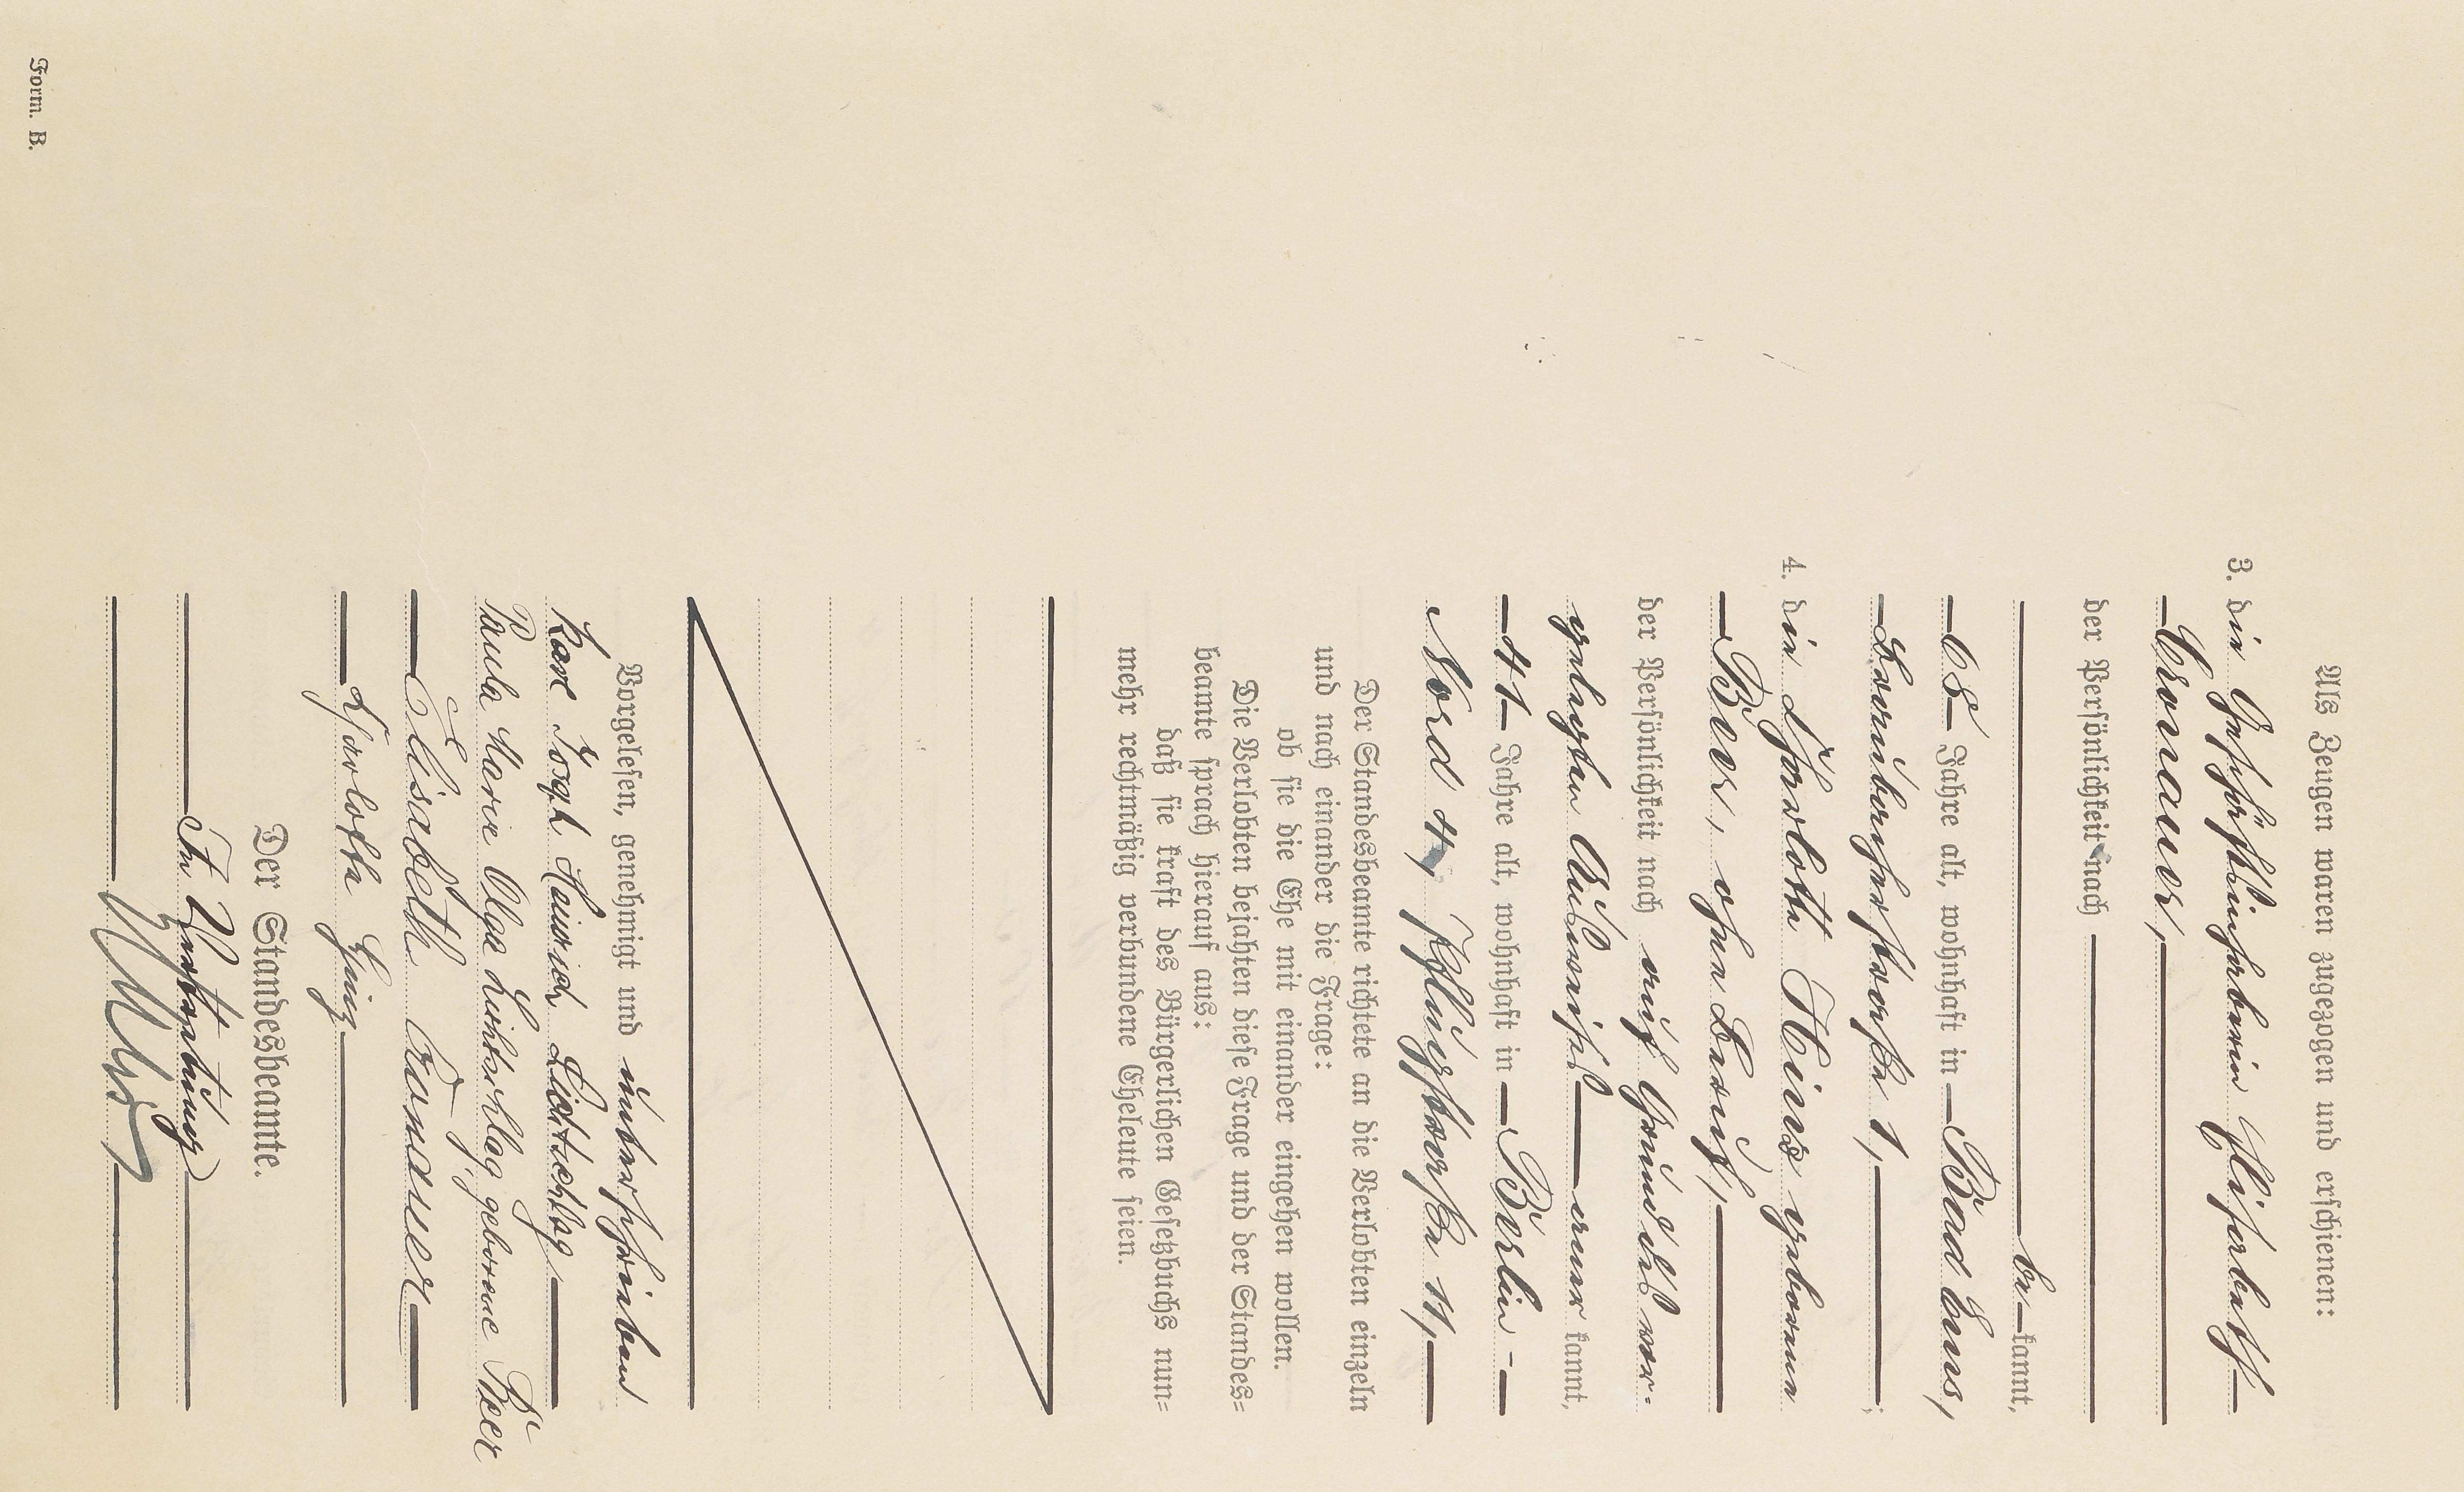 Als Zeugen waren zugezogen und erschienen:
3. die Geschäftsinhaberin Elisabeth
Cronauer,
der Persönlichkeit nach
be kannt,
68 Jahre alt, wohnhaft in Bad Ems,
Braubacherstraße 1, ;
4. die Charlotte Heinz geborene
Baer, ohne Beruf,
der Persönlichkeit nach auf Grund des vor-
gelegten Ausweises aner kannt,
41 Jahre alt, wohnhaft in Berlin -
Nord 4, Pflugstraße 11,
Der Standesbeamte richtete an die Verlobten einzeln
und nach einander die Frage:
ob sie die Ehe mit einander eingehen wollen.
Die Verlobten bejahten diese Frage und der Standes=
beamte sprach hierauf aus:
daß sie kraft des Bürgerlichen Gesetzbuchs nun=
mehr rechtmäßig verbundene Eheleute seien.
Vorgelesen, genehmigt und unterschrieben
Karl Joseph Heinrich Lichtschlag
Paula Marie Olga Lichtschlag geborene Baer
Elisabeth Cronauer
Charlotte Heinz
Der Standesbeamte.
In Vertretung
Form. B.